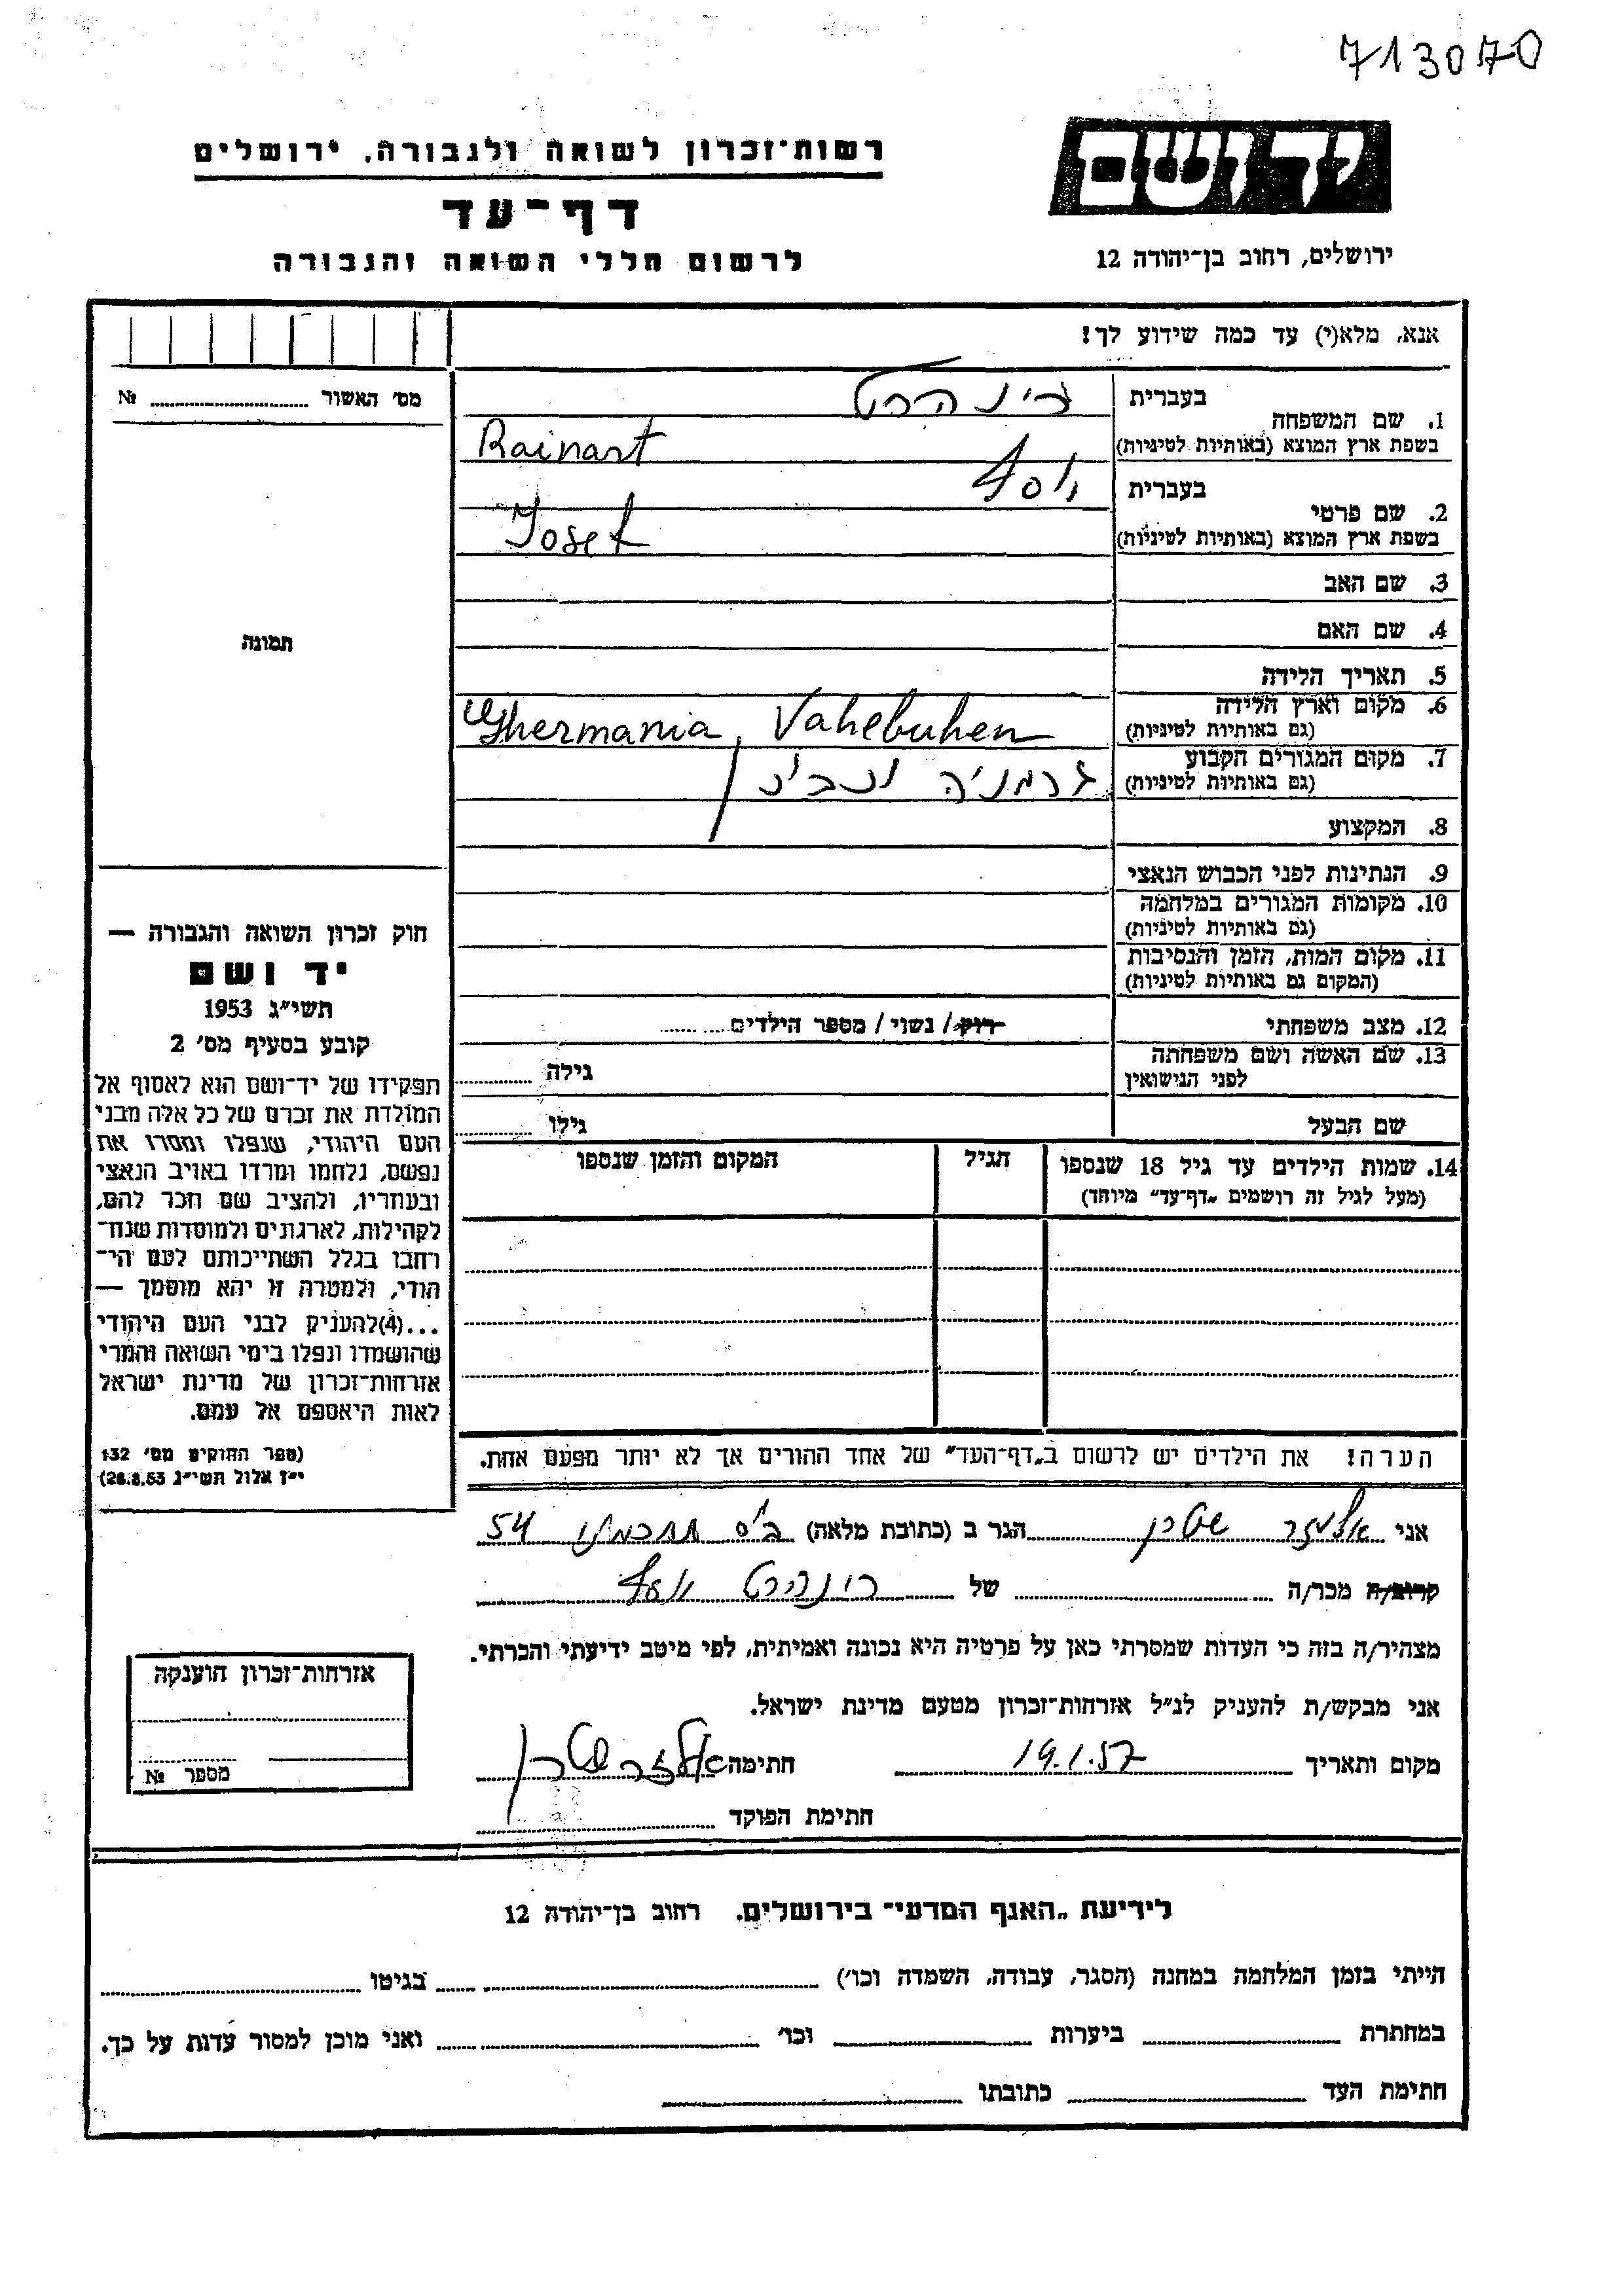 713070
רשות־זכרון לשואה ולגבורה, ירושלים
יד ושם
דף־עד
לרשום חללי השואה והגבורה
ירושלים, רחוב בן־יהודה 12
אנא, מלא(י) עד כמה שידוע לך!
מס׳ האשור № 
בעברית
1. שם המשפחה
בשפת ארץ המוצא (באותיות לטיניות)
רינהרט
Rainart
בעברית
2. שם פרטי
בשפת ארץ המוצא (באותיות לטיניות)
יוסף
Josef
3. שם האב
4. שם האם
תמונה
5. תאריך הלידה
6. מקום וארץ הלידה
(גם באותיות לטיניות)
Ghermania, Vahebuhen
7. מקום המגורים הקבוע
(גם באותיות לטיניות)
גרמניה
8. המקצוע
9. הנתינות לפני הכבוש הנאצי
10. מקומות המגורים במלחמה
(גם באותיות לטיניות)
11. מקום המות, הזמן והנסיבות
(המקום גם באותיות לטיניות)
12. מצב משפחתי
רווק / נשוי / מספר הילדים
13. שם האשה ושם משפחתה
לפני הנישואין
גילה
שם הבעל
גילו
14. שמות הילדים עד גיל 18 שנספו
(מעל לגיל זה רושמים „דף־עד״ מיוחד)
הגיל
המקום והזמן שנספו
חוק זכרון השואה והגבורה —
יד ושם
תשי״ג 1953
קובע בסעיף מס׳ 2
תפקידו של יד־ושם הוא לאסוף אל
המולדת את זכרם של כל אלה מבני
העם היהודי, שנפלו ומסרו את
נפשם, נלחמו ומרדו באויב הנאצי
ובעוזריו, ולהציב שם וזכר להם,
לקהילות, לארגונים ולמוסדות שנח־
רבו בגלל השתייכותם לעם הי־
הודי, ולמטרה זו יהא מוסמך —
...(4)להעניק לבני העם היהודי
שהושמדו ונפלו בימי השואה והמרי
אזרחות־זכרון של מדינת ישראל
לאות היאספם אל עמם.
(ספר החוקים מס׳ 132
י״ז אלול תשי״ג 28.8.53)
הערה! את הילדים יש לרשום ב„דף־העד״ של אחד ההורים אך לא יותר מפעם אחת.
אני אלעזר שטרן הגר ב (כתובת מלאה) 54
קרוב/ה מכר/ה של רינהרט יוסף
מצהיר/ה בזה כי העדות שמסרתי כאן על פרטיה היא נכונה ואמיתית, לפי מיטב ידיעתי והכרתי.
אני מבקש/ת להעניק לנ״ל אזרחות־זכרון מטעם מדינת ישראל.
מקום ותאריך 19.1.57 חתימה אלעזר שטרן
חתימת הפוקד
אזרחות־זכרון הוענקה
מספר №
לידיעת „האגף המדעי״ בירושלים, רחוב בן־יהודה 12
הייתי בזמן המלחמה במחנה (הסגר, עבודה, השמדה וכו׳) בגיטו
במחתרת ביערות וכו׳ ואני מוכן למסור עדות על כך.
חתימת העד כתובתו